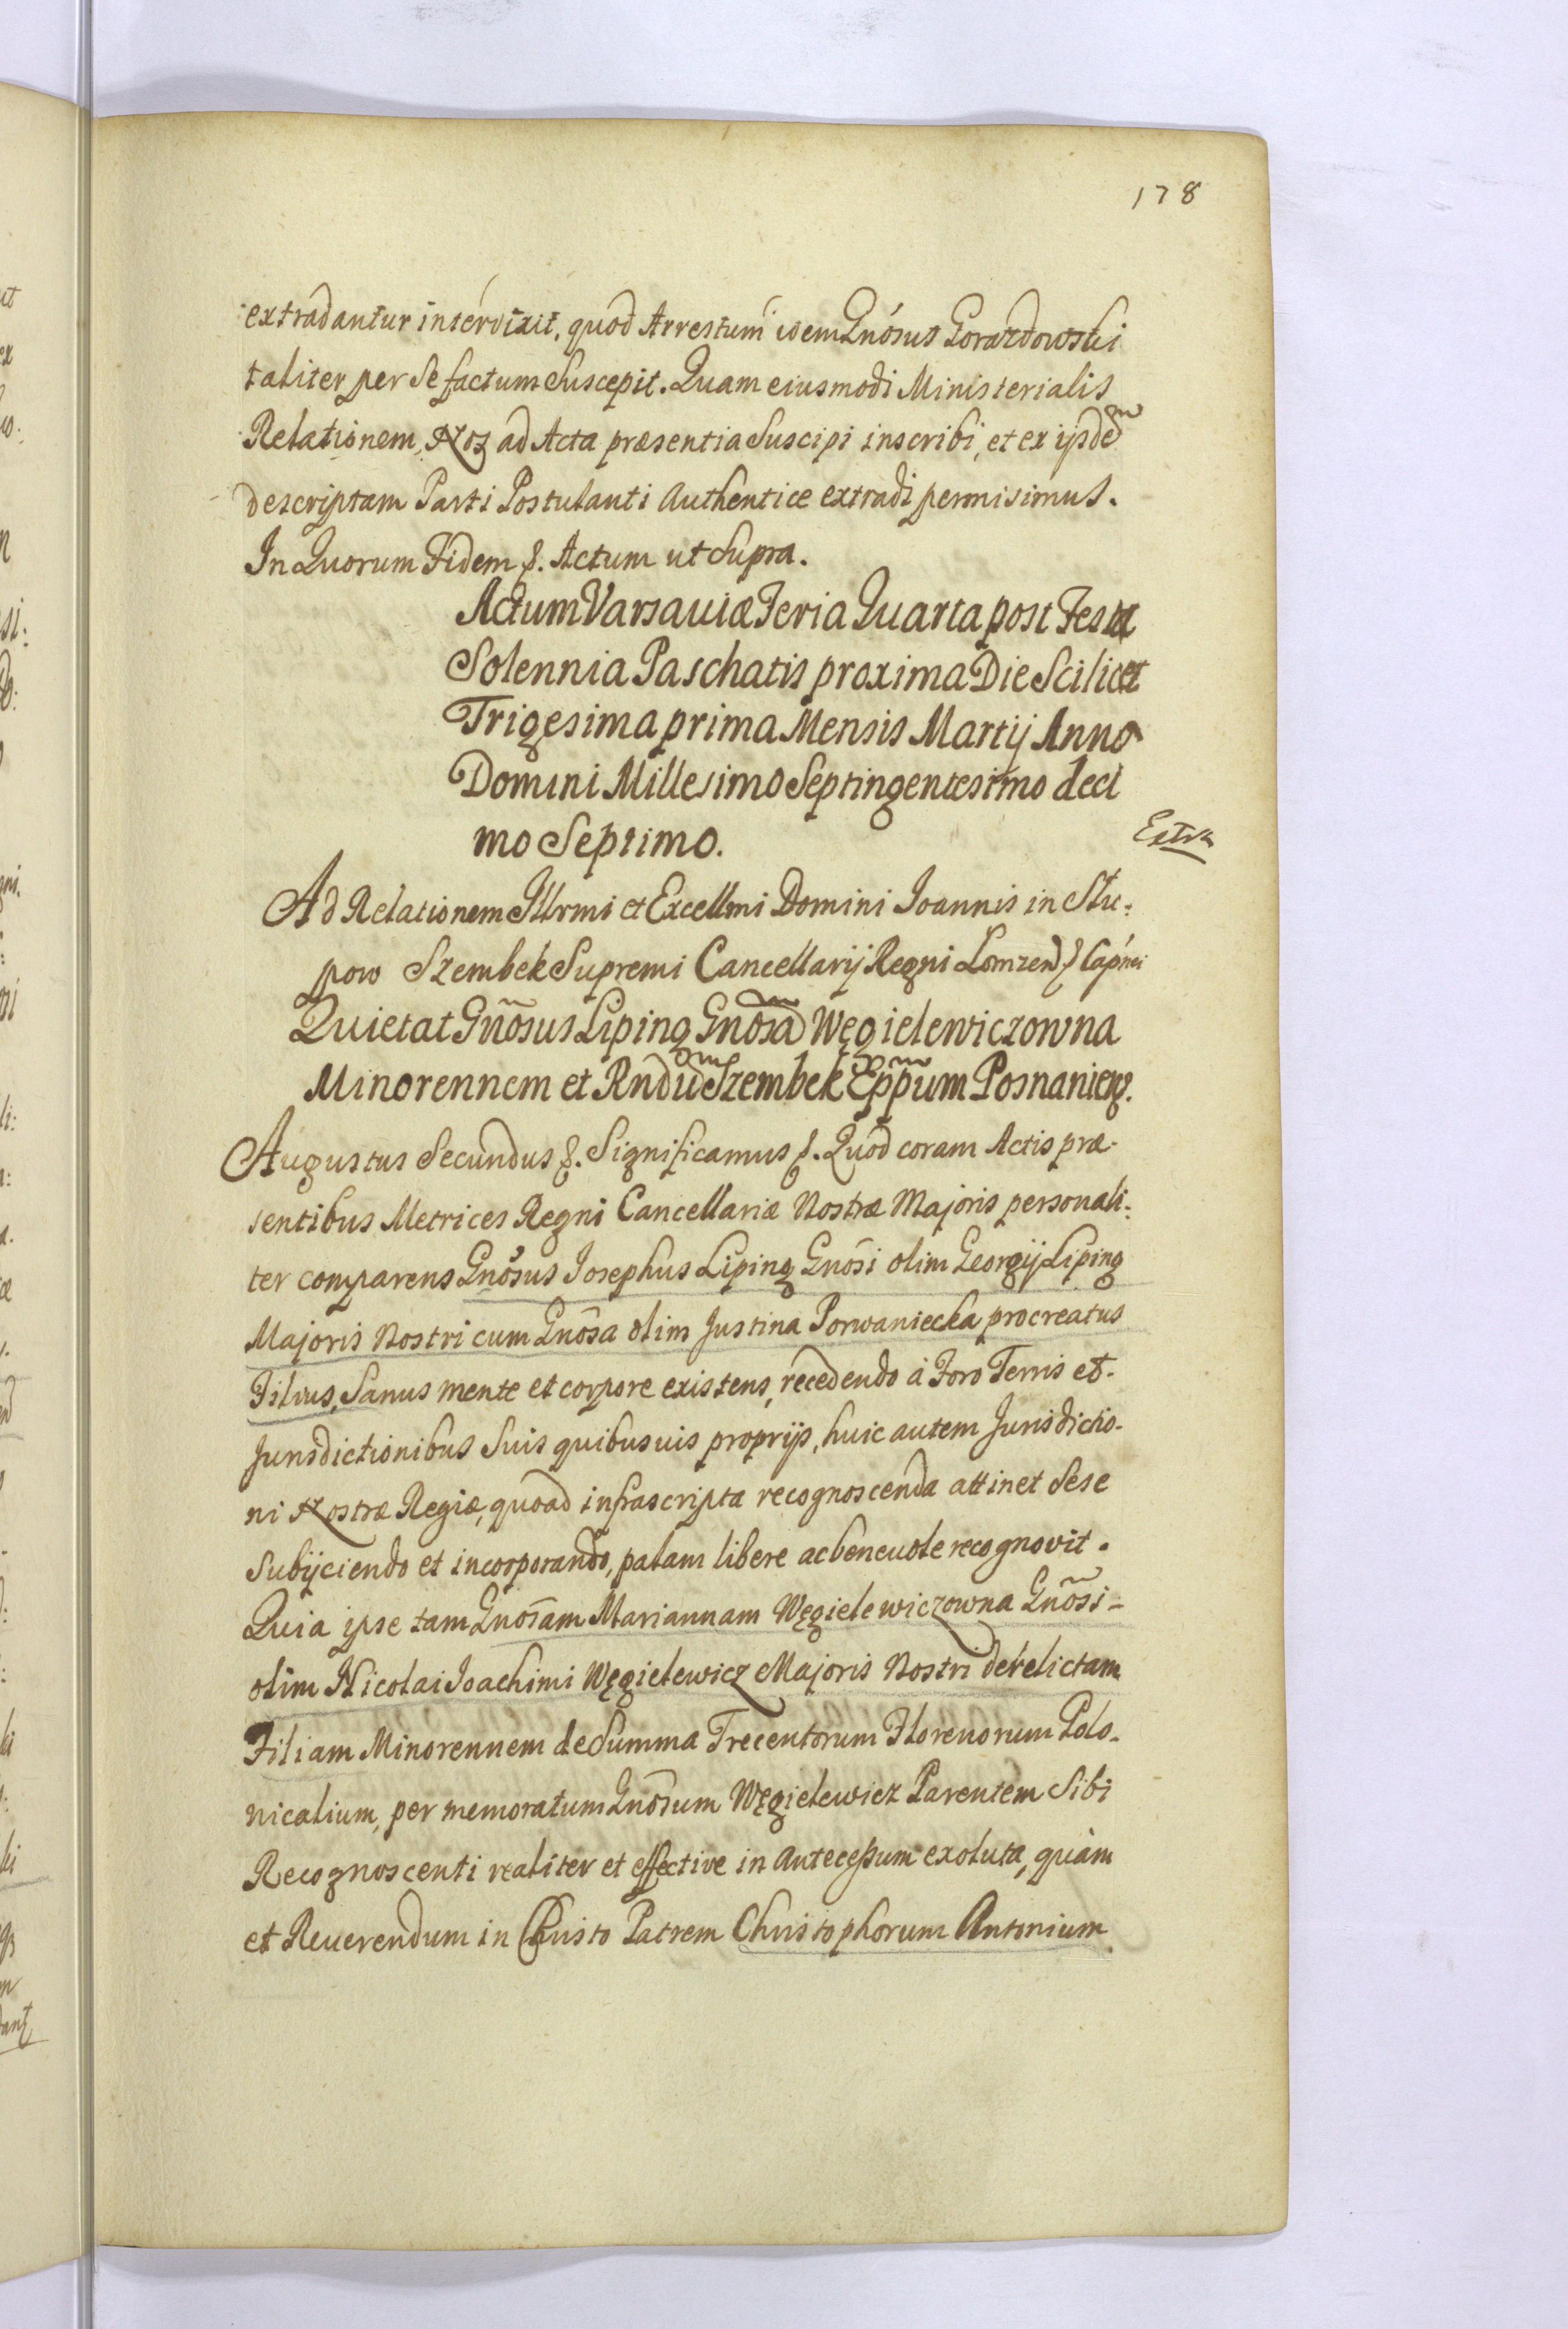 178
extradantur interdixit, quod Arrestum idem Gnosus Gorazdowski
taliter per Se factum Suscepit. Quam eiusmodi Ministerialis
Relationem, Nos ad Acta præsentia Suscipi inscribi, et ex ijsdem
descriptam Parti Postulanti Authentice extradi permisimus.
In Quorum Fidem &. Actum ut Supra.
Actum Varsaviæ Feria Quarta post Festa
Solennia Paschatis proxima Die Scilicet
Trigesima prima Mensis Martij Anno
Domini Millesimo Septingentesimo deci
mo Septimo.
Extra
Ad Relationem Illrmi et Excellmi Domini Joannis in Slu:
pow Szembek Supremi Cancellarij Regni Lomzen &
Quietat Gnõsus Liping Gnõsã Węgielewiczowna
Minorennem et Rndum Szembek Eppum Posnanien.
Augustus Secundus &. Significamus &. Quod coram Actis præ-
sentibus Metrices Regni Cancellariæ Nostræ Majoris personali:
ter comparens Gnosus Josephus Liping Gnõsi olim Georgij Liping
Majoris Nostri cum Gnõsa olim Justina Porwaniecka procreatus
Filius, Sanus mente et corpore existens, recedendo à Foro Terris et
Jurisdictionibus Suis quibusvis proprijs, huic autem Jurisdictio-
ni Nostræ Regiæ, quoad infrascripta recognoscenda attinet Sese
Subijciendo et incorporando, palam libere ac benevole recognovit.
Quia ipse tam Gnosam Mariannam Węgielewiczowna Gnõsi -
olim Nicolai Joachimi Węgielewicz Majoris Nostri derelictam
Filiam Minorennem de Summa Trecentorum Florenorum Polo-
nicalium, per memoratum Gnõsum Węgielewicz Parentem Sibi
Recognoscenti realiter et effective in Antecessum exoluta, quàm
et Reverendum in Christo Patrem Christophorum Antonium